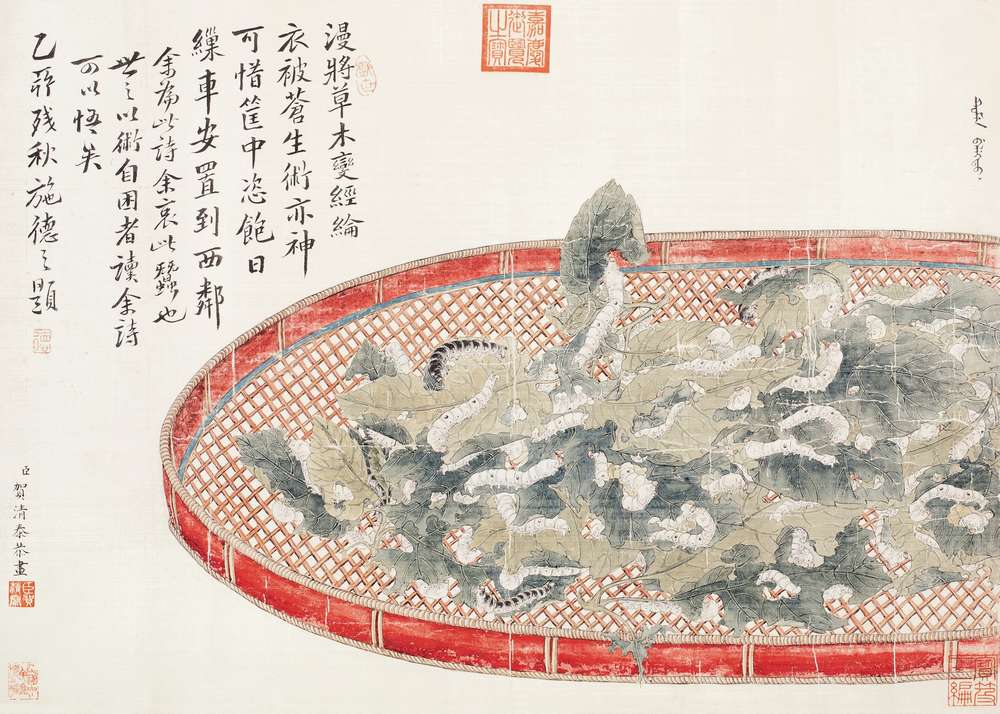 嘉慶御覽之寶
漫將草木變經綸
衣被蒼生術亦神
可惜筐中恣飽日
繅車安置到西鄰
余為此詩余哀此蠶也
世之以術自困者讀余詩
可以悟矣
乙 殘秋施德之題
臣賀清泰恭畫
寶笈三編